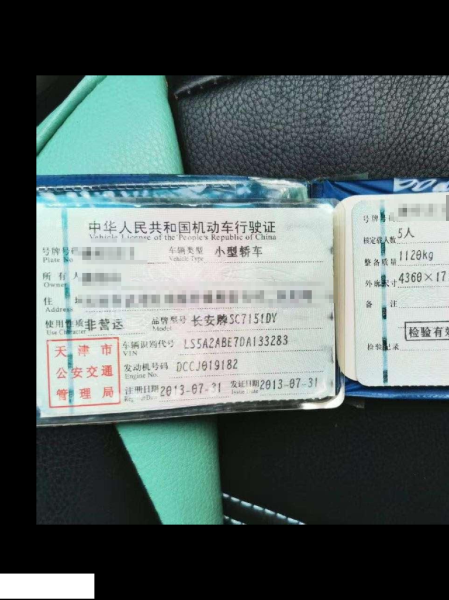 中华人民共和国机动车行驶证
Vehicle License of the People's Republic of China
号牌号码
Plate No.
车辆类型 小型轿车
Vehicle Type
所有人
Owner
住
Address
使用性质 非营运
Use Character
品牌型号 长安牌SC7151DY
Model
天津市
公安交通
管理局
车辆识别代号 LS5A2ABE7DA133283
VIN
发动机号码 DCCJ019182
Engine No.
注册日期 2013-07-31 发证日期 2013-07-31
Register Date Issue Date
号牌号
核定载人数 5人
整备质量 1120kg
外廓尺寸 4360×17
备 注
检验有效
检验记录